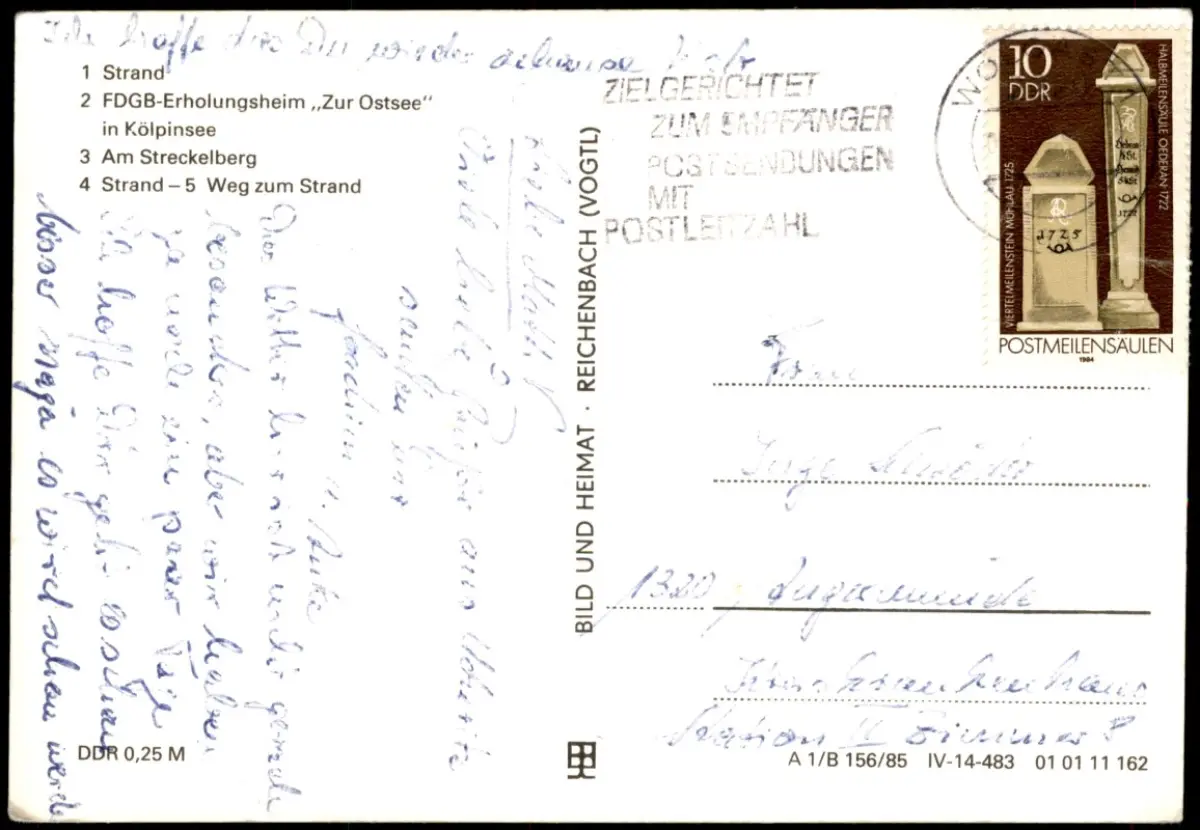 Ich hoffe das Du wieder
1 Strand
2 FDGB-Erholungsheim „Zur Ostsee"
in Kölpinsee
3 Am Streckelberg
4 Strand – 5 Weg zum Strand
Liebe
Grüße aus
senden Dir
Joachim u.
Das Wetter ist nicht gerade
besonders, aber wir haben
ja noch ein paar Tage
Ich hoffe Dir geht es schon
besser na ja es wird schon werden
DDR 0,25 M
BILD UND HEIMAT · REICHENBACH (VOGTL)
ZIELGERICHTET
ZUM EMPFÄNGER
POSTSENDUNGEN
MIT
POSTLEITZAHL
WO
10
DDR
HALBMEILENSÄULE OEDERAN 1722
VIERTELMEILENSTEIN MÜHLAU 1725
1725
1722
POSTMEILENSÄULEN
1984
Frau
Inge Schröder
1320, Angermünde
Kreiskrankenhaus
Station II Zimmer 8
A 1/B 156/85 IV-14-483 01 01 11 162